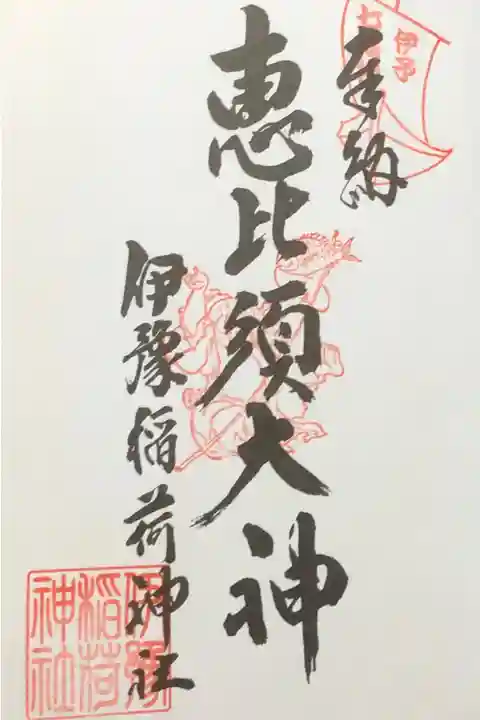 奉納
伊予
恵比須大神
伊豫稲荷神社
伊豫
稲荷
神社